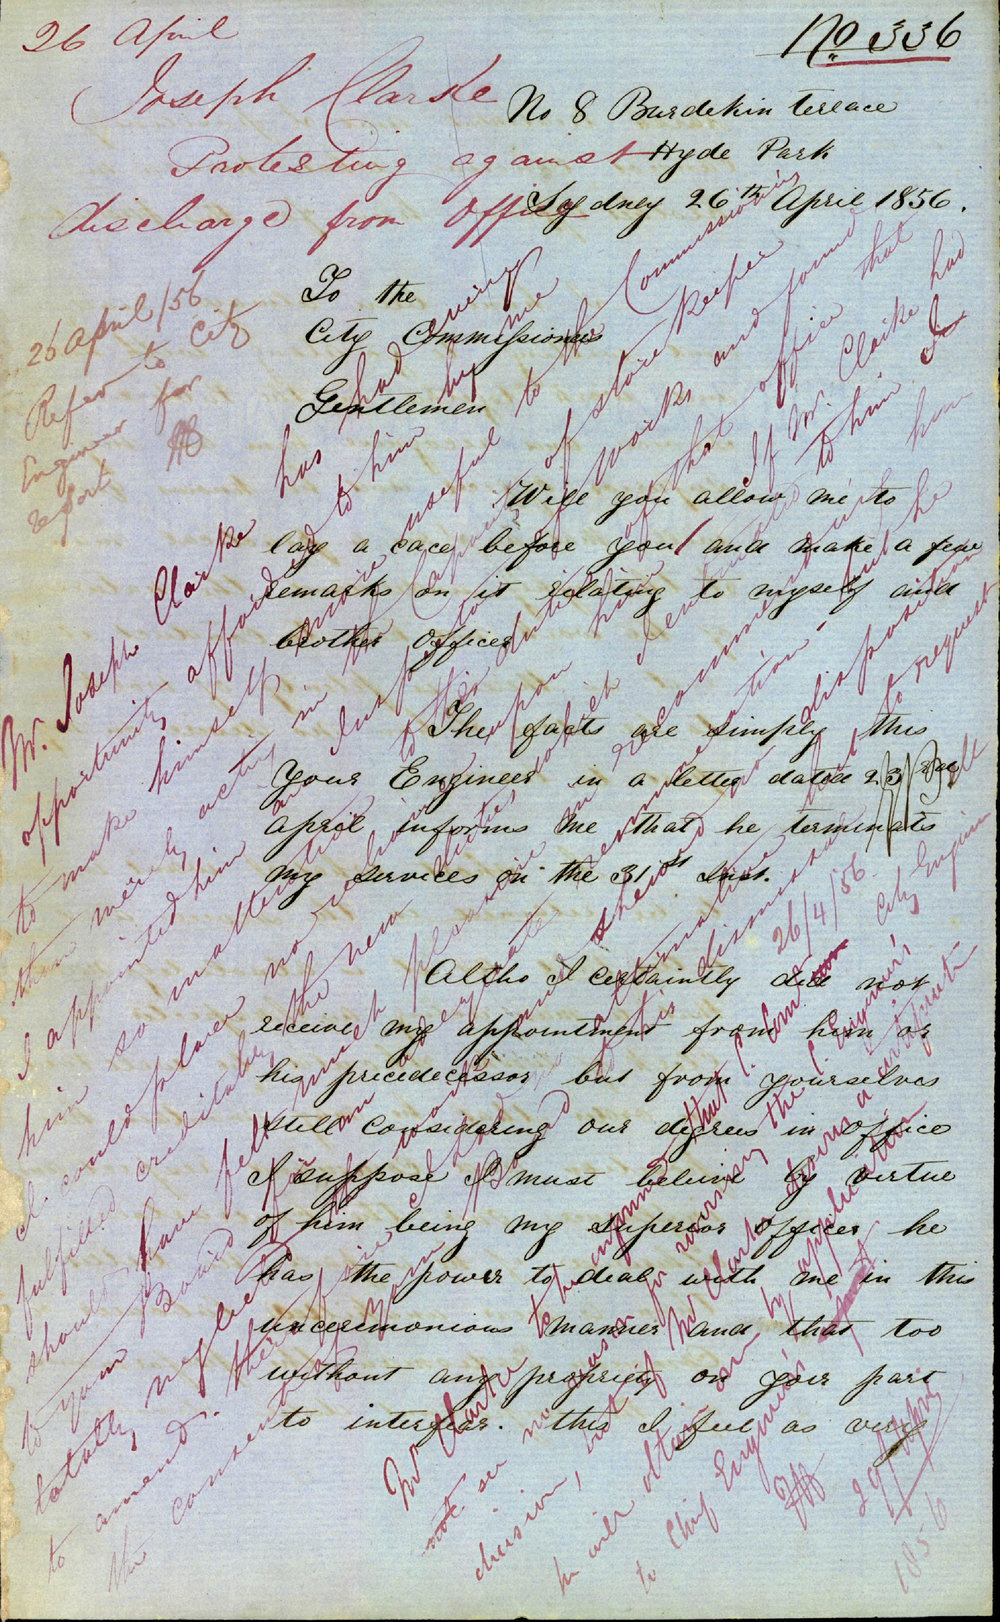 26 April
No 336
Joseph Clarke
Protesting against
discharge from Office
No 8 Burdekin terrace
Hyde Park
Sydney 26th April 1856.
26 April/56
Refer to City
Engineer for
report
To the
City Commissioners
Gentlemen
Will you allow me to
lay a case before you and make a few
remarks on it relating to myself and
brother Officers
The facts are simply this
your Engineer in a letter dated 23rd
April informs me that he terminats
my services on the 31st Inst.
Altho I certainly did not
receive my appointment from him or
his precedecessor but from yourselves
still considering our degrees in office
I suppose I must beleive by virtue
of him being my superior officer he
has the power to deal with me in this
unceremonious manner and that too
without any propriety on your part
to interfear. this I feel as very
Mr. Joseph Clarke has had every
opportunity afforded to him by me
to make himself more useful to the Commissioners
than merely acting in the Capacity of store keeper
I appointed him an Inspector of Works and found
him so inattentive to the duties of that office that
I could place no reliance upon him If Mr. Clarke had
fulfilled creditably the new duties which I entrusted to him I
should have felt much pleasure in recommending him
to your Board for an adequate remuneration but he
totally neglected and shewed no disposition
to amend. therefore I had no alternative but to request
the consent of your Board to his dismissal
26/4/56
City Engineer
Mr Clarke to be informed that the Commr
not see reason for revising the C. Engineer's
decision, but if Mr Clarke desires a certificate
he will obtain one by application
to Chief Engineer
29 April
1856